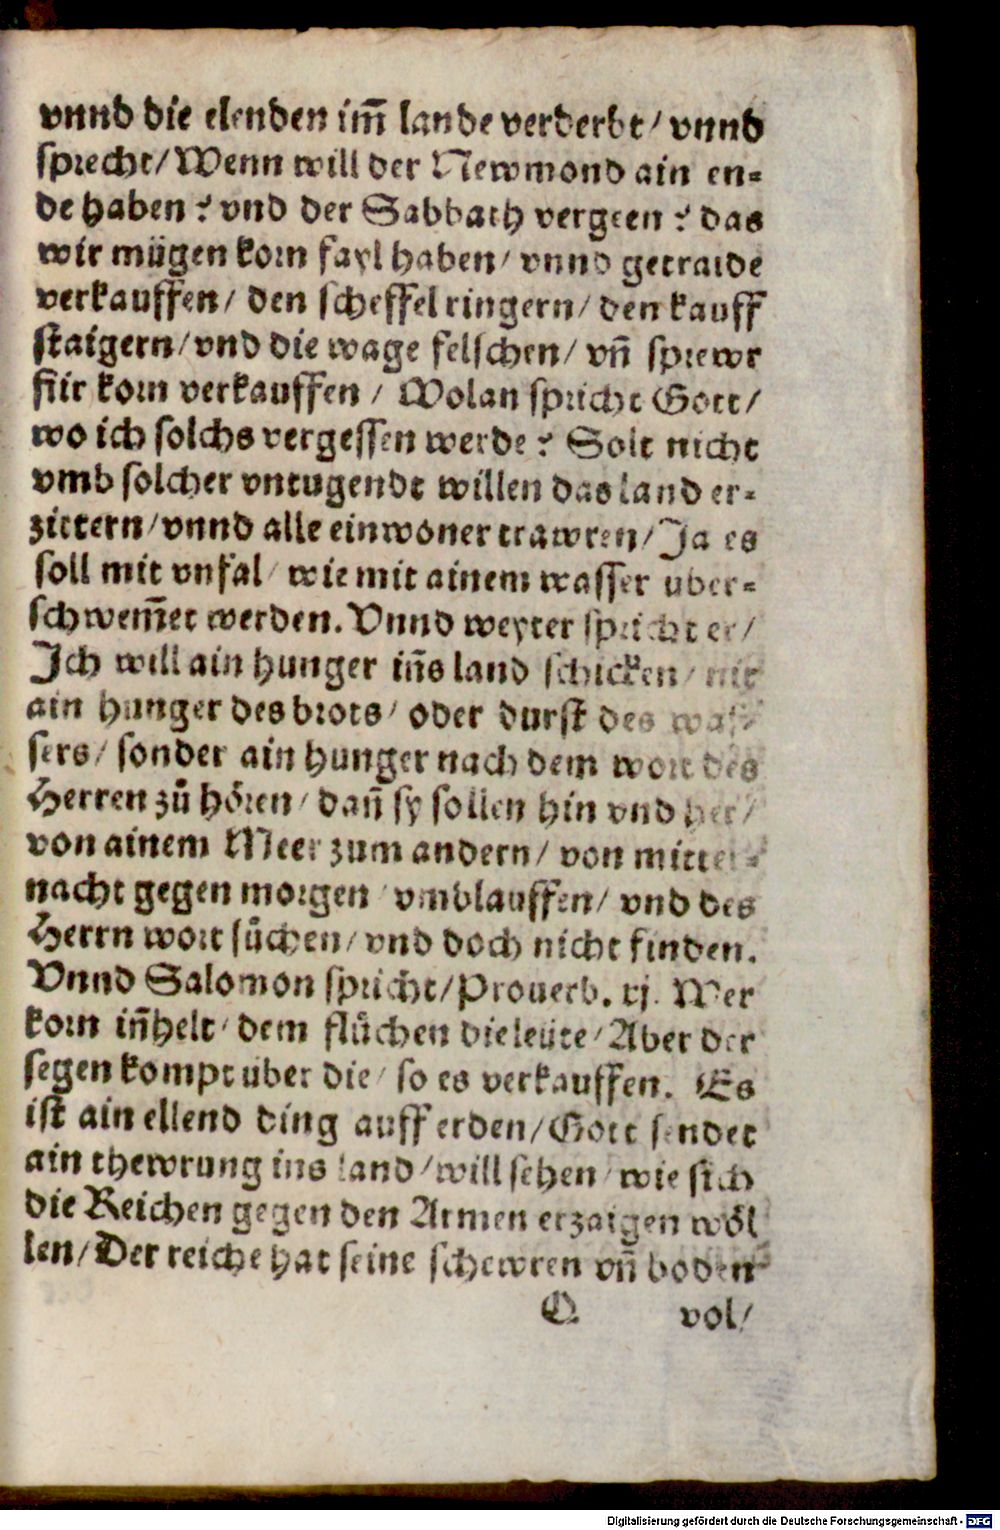 vnnd die elenden im̃ lande verderbt / vnnd
sprecht / Wenn will der Newmond ain en-
de haben? vnd der Sabbath vergeen? das
wir mügen korn fayl haben / vnnd getraide
verkauffen / den scheffel ringern / den kauff
staigern / vnd die wage felschen / vñ sprewr
für korn verkauffen / Wolan spricht Gott /
wo ich solchs vergessen werde? Solt nicht
vmb solcher vntugendt willen das land er-
zittern / vnnd alle einwoner trawren / Ja es
soll mit vnfal / wie mit ainem wasser uber-
schwem̃et werden. Vnnd weyter spricht er /
Ich will ain hunger iñs land schicken / nit
ain hunger des brots / oder durst des was-
sers / sonder ain hunger nach dem wort des
Herren zů hören / dañ sy sollen hin vnd her /
von ainem Meer zum andern / von mitter-
nacht gegen morgen / vmblauffen / vnd des
Herrn wort sůchen / vnd doch nicht finden.
Vnnd Salomon spricht / Prouerb. xj. Wer
korn iñhelt / dem flůchen die leüte / Aber der
segen kompt uber die / so es verkauffen. Es
ist ain ellend ding auff erden / Gott sendet
ain thewrung ins land / will sehen / wie sich
die Reichen gegen den Armen erzaigen wöl
len / Der reiche hat seine schewren vñ boden
O vol /
Digitalisierung gefördert durch die Deutsche Forschungsgemeinschaft - DFG